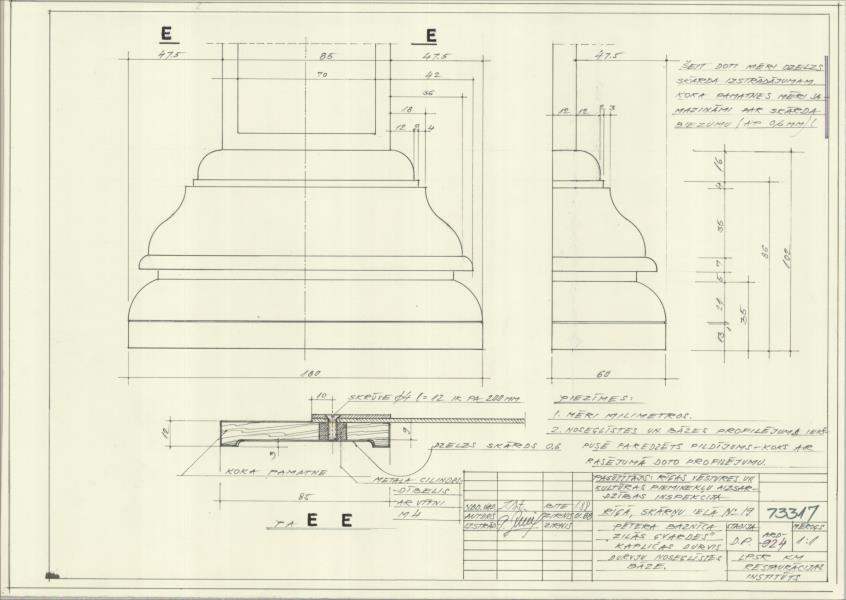 E E
47.5 85 47.5
70 42
36
18
12 2 4
47.5
12 12 2 3
ŠEIT DOTI MĒRI DZELZS
SKĀRDA IZSTRĀDĀJUMAM,
KOKA PAMATNES MĒRI JA-
MAZINĀMI PAR SKĀRDA
BIEZUMU
16
35
7
5
86
102
35
13
180
60
10
SKRŪVE ϕ4 l=12 IK PA 200MM
12
DZELZS SKĀRDS 0,6
KOKA PAMATNE
METĀLA CILINDRS-
DĪBELIS
AR VĪTNI
M4
85
E E
PIEZĪMES:
1. MĒRI MILIMETROS.
2. NOSEGLĪSTES UN BĀZES PROFILĒJUMA IEKŠ-
PUSĒ PAREDZĒTS PILDĪJUMS-KOKS AR
RASĒJUMĀ DOTO PROFILĒJUMU.
PASŪTĪTĀJS: RĪGAS VĒSTURES UN
KULTŪRAS PIEMINEKĻU AIZSAR-
DZĪBAS INSPEKCIJA
RĪGĀ, SKĀRŅU IELĀ Nº 19
73317
PĒTERA BAZNĪCA
„ZILĀS GVARDES"
KAPLIČAS DURVIS
DURVJU NOSEGLĪSTES
BĀZE.
STADIJA
D.P.
ARD-
924
MĒROGS
1:1
LPSR KM
RESTAURĀCIJAS
INSTITŪTS
NOD. VAD.
AUTORS
IZSTRĀD.
ZIRNIS
ZIRNIS